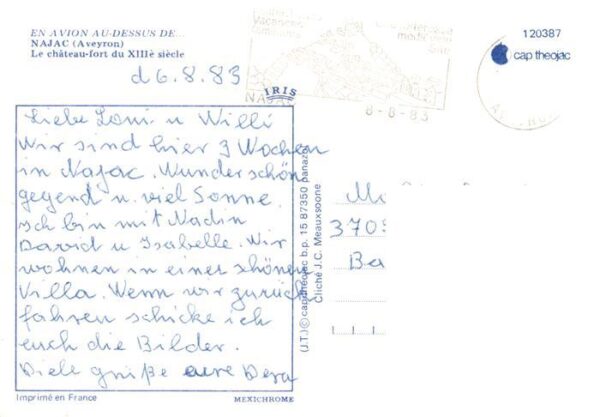 EN AVION AU-DESSUS DE...
NAJAC (Aveyron)
Le château-fort du XIIIè siècle
d 6.8.83
120387
cap theojac
NAJAC
8-8-83
IRIS
Liebe Loni u Willi
Wir sind hier 3 Wochen
in Najac. Wunderschön
gegend u. viel Sonne.
ich bin mit Nadin
David u Isabelle. Wir
wohnen in einer schönen
Villa. Wenn wir zurück
fahren schicke ich
euch die Bilder.
Viele grüße eure Dera
(J.T.) © cap theojac b.p. 15 87350 panazol
Cliché J.C. Meauxsoone
370
Ba
Imprimé en France
MEXICHROME